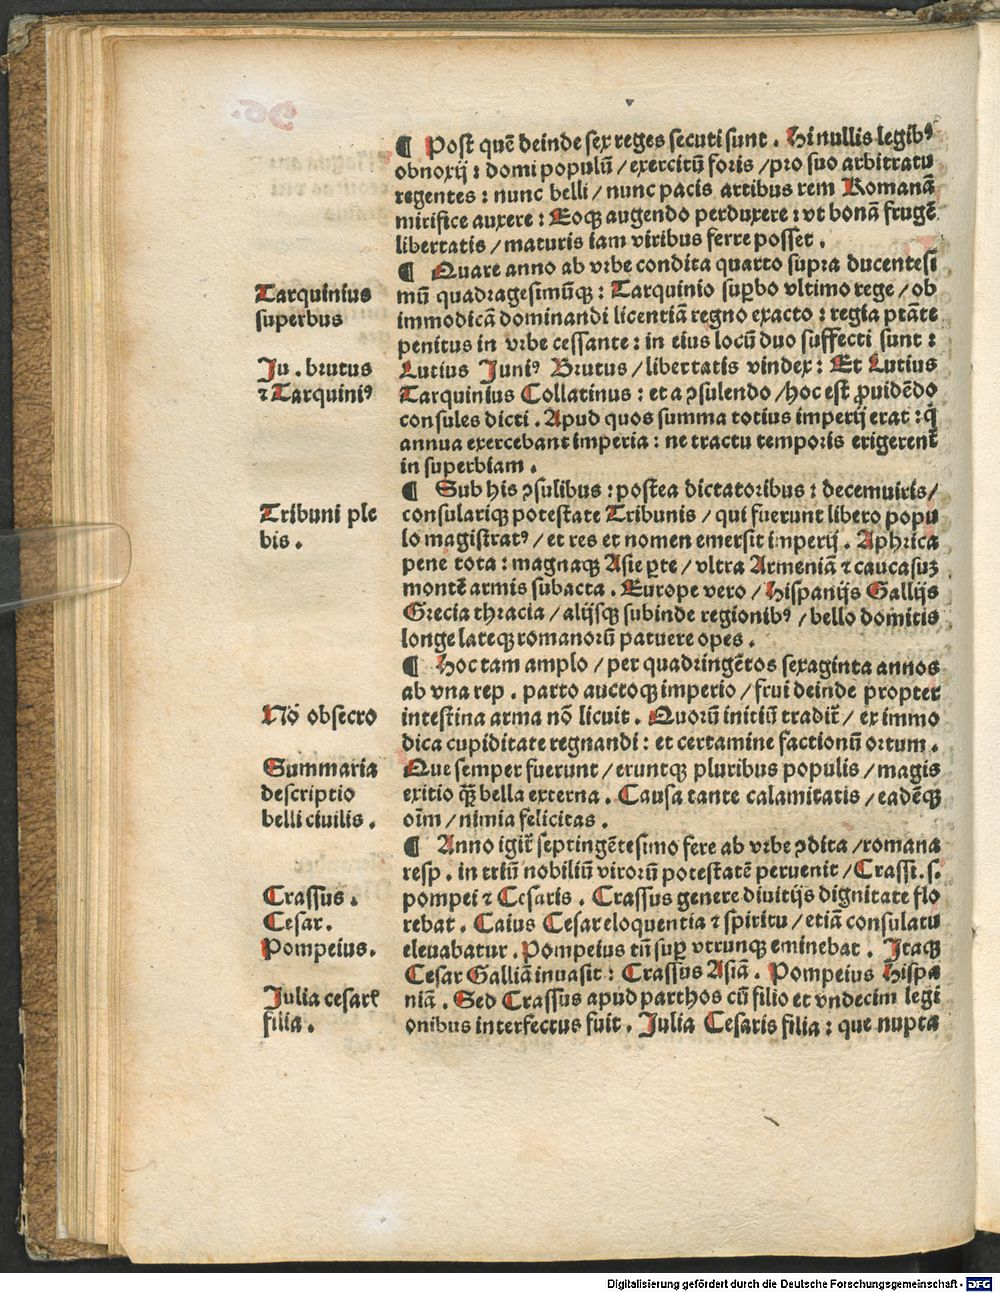 ¶ Post quē deinde sex reges secuti sunt . Hi nullis legibꝰ
obnoxij : domi populū / exercitū foris / pro suo arbitratu
regentes : nunc belli / nunc pacis artibus rem Romanā
mirifice auxere : Eoqꝫ augendo perduxere : vt bonā frugē
libertatis / maturis iam viribus ferre posset .
¶ Quare anno ab vrbe condita quarto supra ducentesi
Tarquinius
superbus
mū quadragesimūqꝫ : Tarquinio suꝑbo vltimo rege / ob
immodicā dominandi licentiā regno exacto : regia ptāte
penitus in vrbe cessante : in eius locū duo suffecti sunt :
Ju . brutus
⁊ Tarquiniꝰ
Lutius Juniꝰ Brutus / libertatis vindex : Et Lutius
Tarquinius Collatinus : et a ꝯsulendo / hoc est ꝓuidēdo
consules dicti . Apud quos summa totius imperij erat : q̄
annua exercebant imperia : ne tractu temporis erigerent̄
in superbiam .
¶ Sub his ꝯsulibus : postea dictatoribus : decemuiris /
Tribuni ple
bis .
consulariqꝫ potestate Tribunis / qui fuerunt libero popu
lo magistratꝰ / et res et nomen emersit imperij . Aphrica
pene tota : magnaqꝫ Asie ꝑte / vltra Armeniā ⁊ caucasuꝫ
montē armis subacta . Europe vero / Hispanijs Gallijs
Grecia thracia / alijsqꝫ subinde regionibꝰ / bello domitis
longe lateqꝫ romanorū patuere opes .
¶ Hoc tam amplo / per quadringētos sexaginta annos
ab vna rep . parto auctoqꝫ imperio / frui deinde propter
Nō obsecro
intestina arma nō licuit . Quorū initiū tradit̄ / ex immo
dica cupiditate regnandi : et certamine factionū ortum .
Summaria
descriptio
belli ciuilis .
Que semper fuerunt / eruntqꝫ pluribus populis / magis
exitio q̄ꝫ bella externa . Causa tante calamitatis / eadēqꝫ
oīm / nimia felicitas .
¶ Anno igit̄ septingētesimo fere ab vrbe ꝯdita / romana
resp . in triū nobiliū virorū potestatē peruenit / Crassi . s .
Crassus .
Cesar .
Pompeius .
pompei ⁊ Cesaris . Crassus genere diuitijs dignitate flo
rebat . Caius Cesar eloquentia ⁊ spiritu / etiā consulatu
eleuabatur . Pompeius tn̄ suꝑ vtrunqꝫ eminebat . Itaqꝫ
Cesar Galliā inuasit : Crassus Asiā . Pompeius Hispa
Julia cesarꝭ
filia .
niā . Sed Crassus apud parthos cū filio et vndecim legi
onibus interfectus fuit . Julia Cesaris filia : que nupta
Digitalisierung gefördert durch die Deutsche Forschungsgemeinschaft - DFG